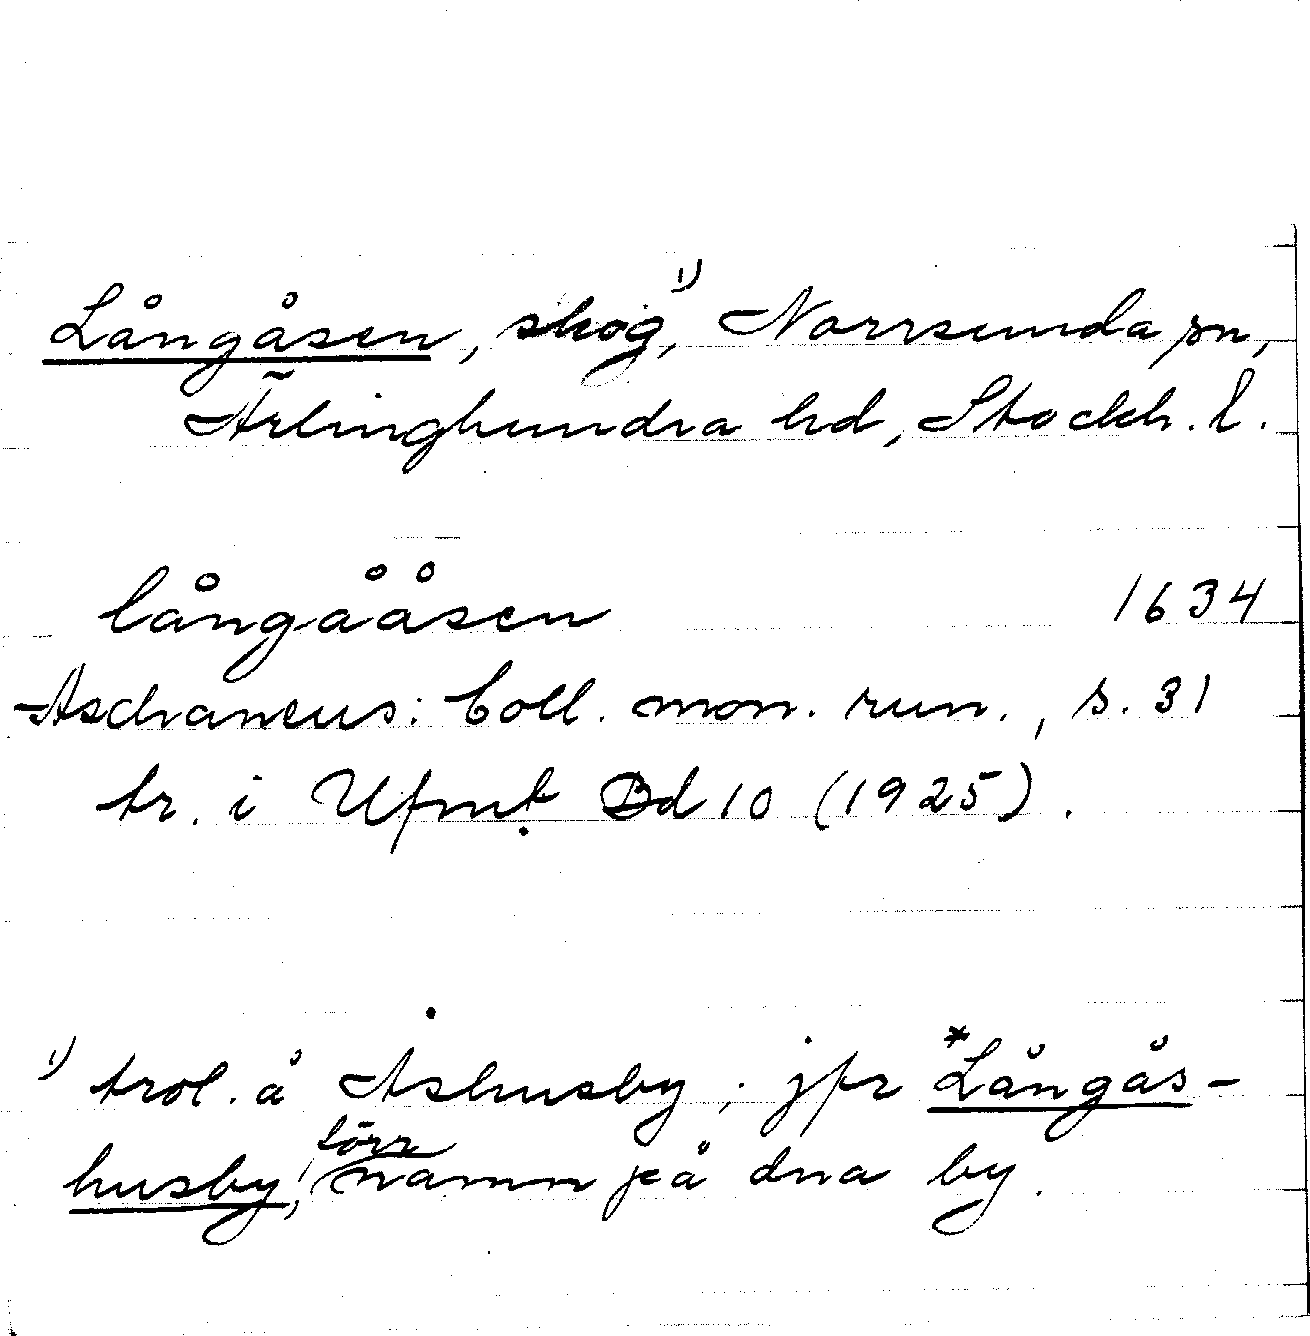 Långåsen, skog¹⁾, Norrsunda sn,
Ärlinghundra hd, Stockh. l.
långååsen 1634
Aschaneus: Coll. mon. run., s. 31
tr. i Ufmt Bd 10 (1925).
¹⁾ trol. å Åshusby; jfr *Långås-
husby, förr namn på dna by.